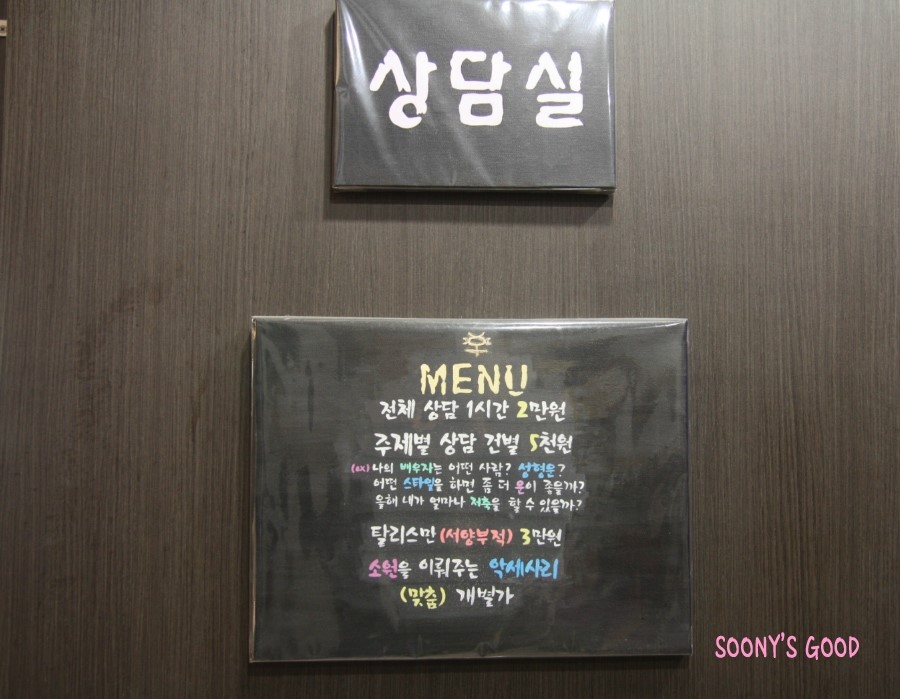 상담실
MENU
전체 상담 1시간 2만원
주제별 상담 건별 5천원
(ex) 나의 배우자는 어떤 사람? 성형운?
어떤 스타일을 하면 좀 더 운이 좋을까?
올해 내가 얼마나 저축을 할 수 있을까?
탈리스만 (서양부적) 3만원
소원을 이뤄주는 악세사리
(맞춤) 개별가
SOONY'S GOOD